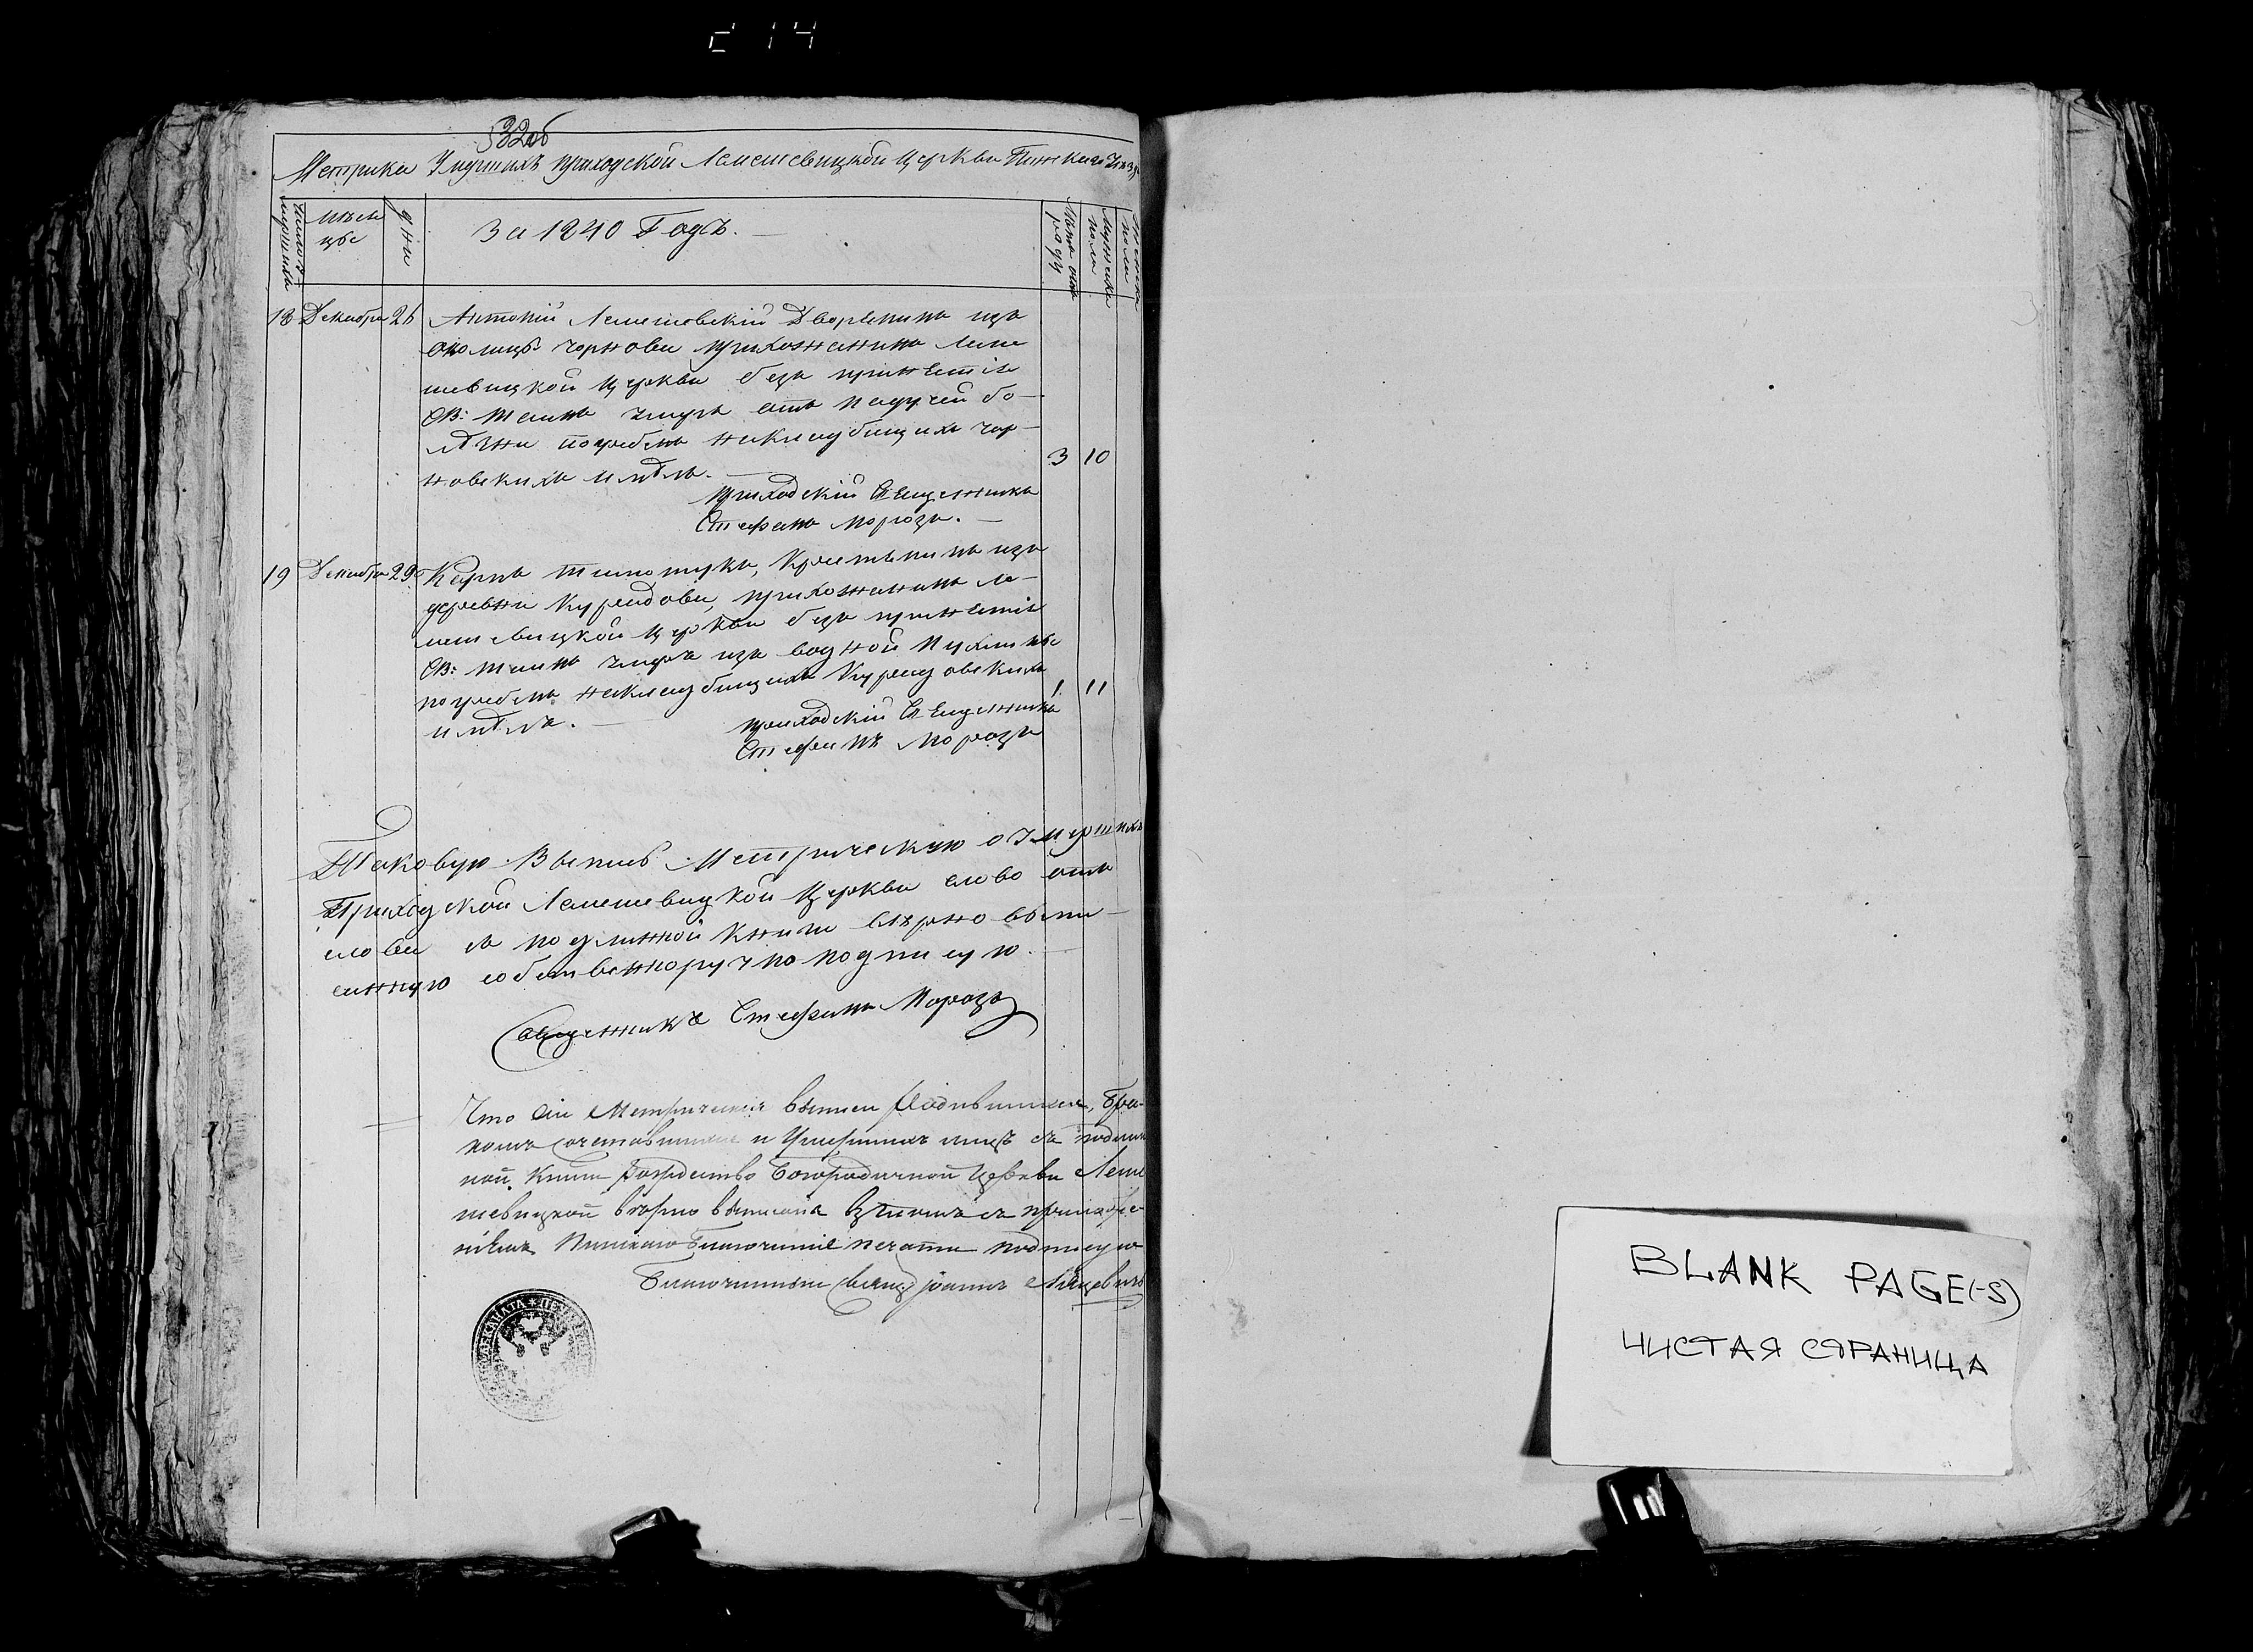 532об
Метрика Умершихъ приходской Лемешевицкой Церкви Пинскаго Уѣзда
Число умершихъ
Мѣся
цы
дни
За 1840 Годъ. —
Лѣта отъ роду
Мужеска пола
Женска пола
18 Декабря 26 Антоній Лемешевскій Дворѣнинъ изъ
околицы Чорнова прихожанинъ Леме
шевицкой Церкви безъ принѣтія
Св: таинъ умеръ отъ падучей бо-
лѣзни погребенъ на кладбищахъ Чор-
новскихъ имѣлъ. — 3 10
приходскій Священникъ
Стефанъ Морозъ. —
19 Декабря 29 Карпъ Тимощукъ, Крестьянинъ изъ
деревни Курадова, прихожанинъ Ле-
мешевицкой Церкви безъ принѣтія
Св: таинъ умеръ изъ водной пухлины
погребенъ на кладбищахъ Курадовскихъ
имѣлъ. — 1 11
приходскій Священникъ
Стефанъ Морозъ
Таковую Выпись Метрическую о Умершихъ
Приходской Лемешевицкой Церкви слово отъ
слова съ подлинной книги вѣрно выпи-
санную собственноручно подписую. —
Священникъ Стефанъ Морозъ
Что сіи Метрическія выписи Родившихся, Бра-
комъ сочетавшихся и Умершихъ лицъ съ подлин
ной книги Рождество Богородичной Церкви Леме
шевицкой вѣрно выписана въ томъ съ приложе-
ніемъ Пинскаго Благочинія печати подписую
Благочинный Свящ: Іоаннъ
BLANK PAGE(-S)
ЧИСТАЯ СТРАНИЦА